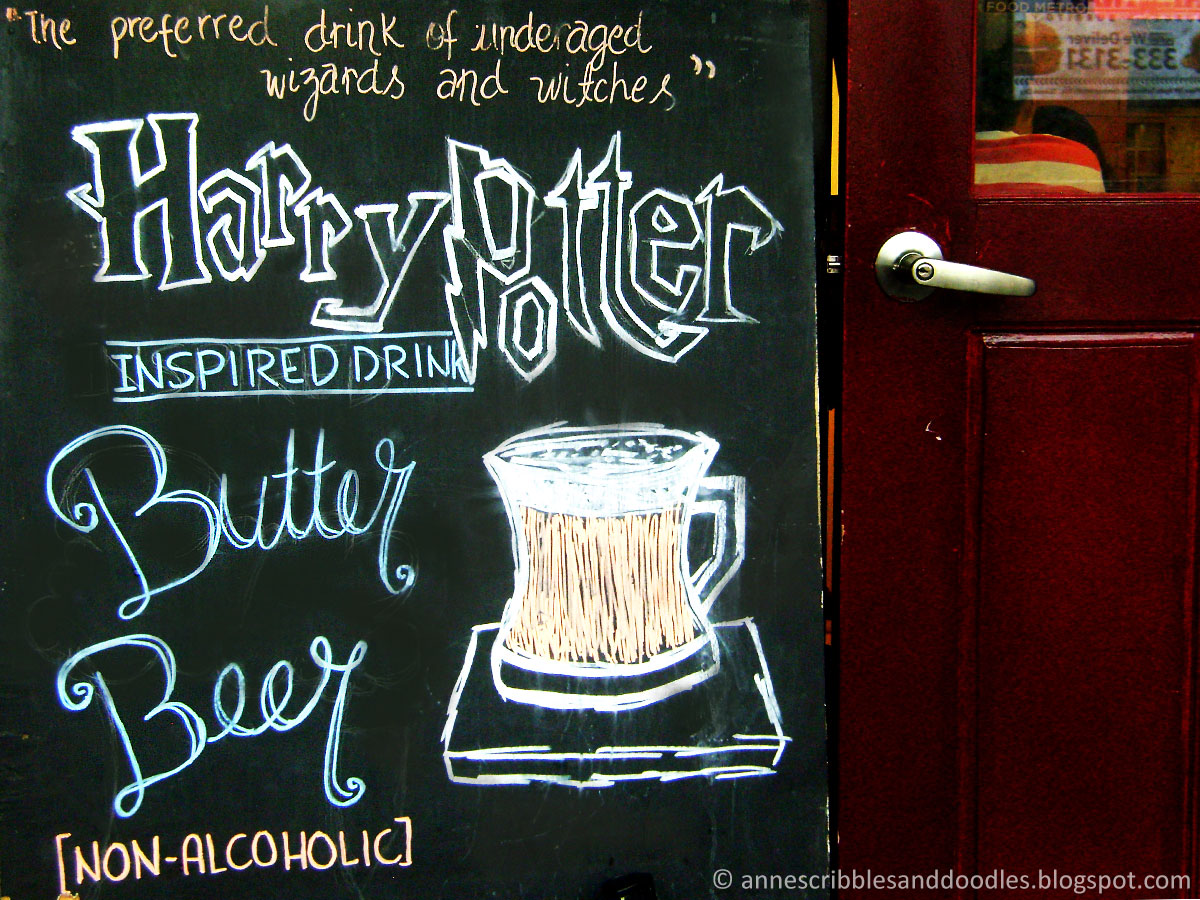 "The preferred drink of underaged
wizards and witches"
Harry Potter
INSPIRED DRINK
Butter
Beer
[NON-ALCOHOLIC]
FOOD METRO
We Deliver
333-3131
© annescribblesanddoodles.blogspot.com